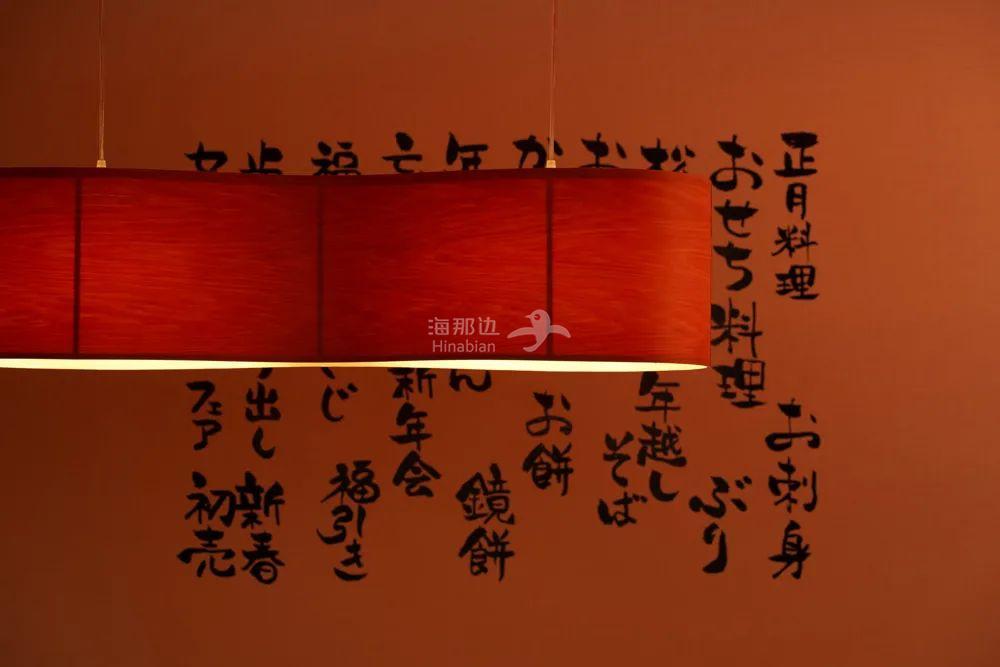 正月料理
お刺身
おせち料理
ぶり
年越し
そば
お
か
お餅
年
ん
鏡餅
新年会
福
じ
福引き
出し
新春
フェア
初売
海那边
Hinabian